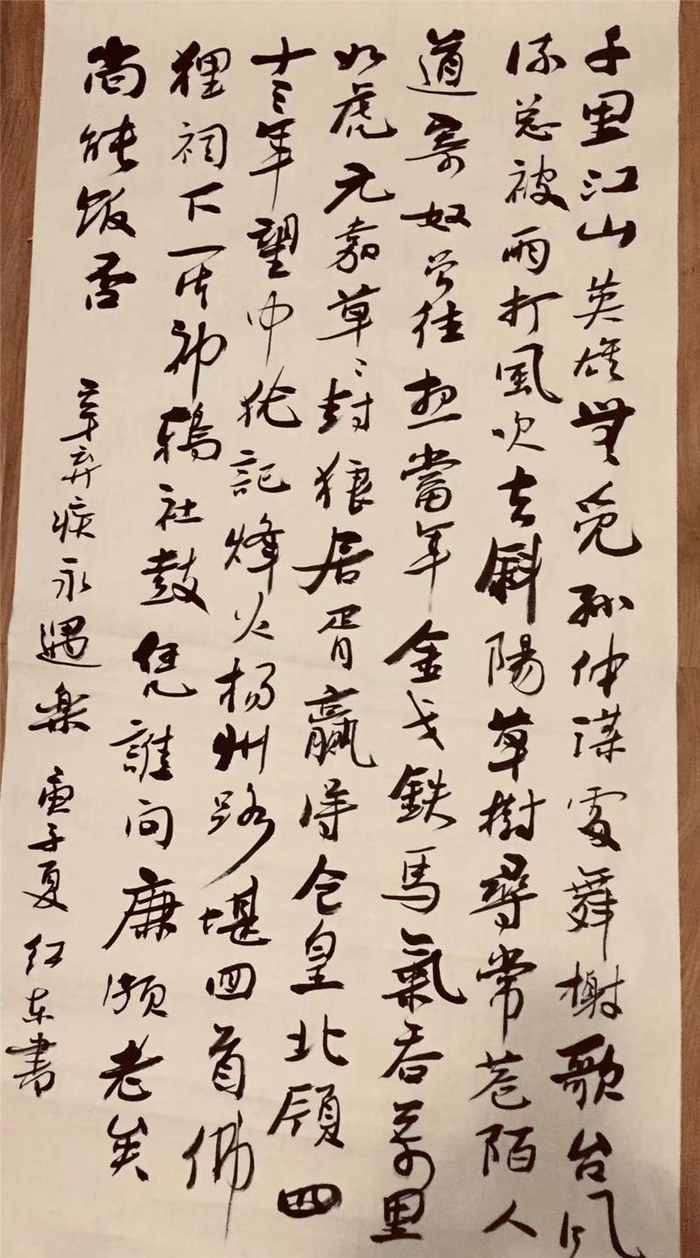 千里江山英雄無覓孙仲谋處舞榭歌台风
流总被雨打風吹去斜陽草樹尋常巷陌人
道寄奴曾住想當年金戈鉄馬氣吞萬里
如虎元嘉草々封狼居胥赢得仓皇北顧四
十三年望中犹記烽火扬州路堪回首佛
狸祠下一片神鸦社鼓凭誰问廉颇老矣
尚能饭否
辛弃疾永遇楽 庚子夏 红东書